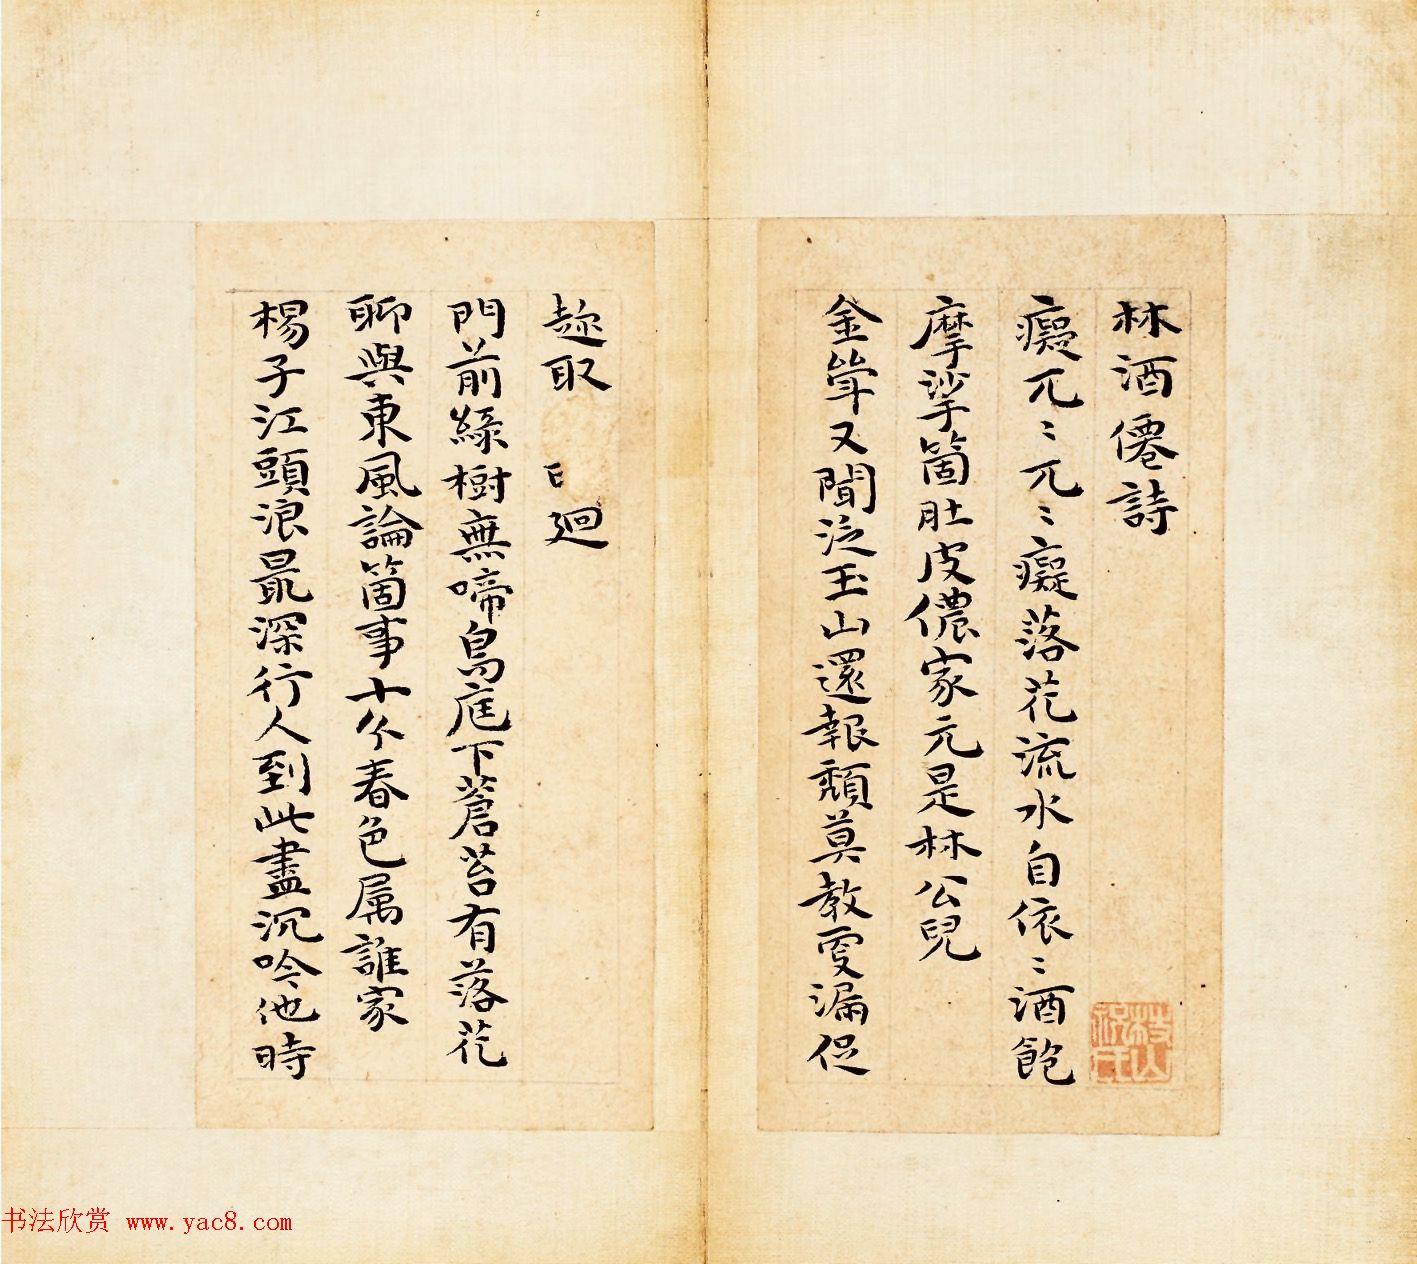 林酒僊詩
癡兀〻兀〻癡落花流水自依〻酒飽
摩挲箇肚皮儂家元是林公兒
金斝又聞泛玉山還報頹莫教更漏促
趂取迴
門前綠樹無啼鳥庭下蒼苔有落花
聊與東風論箇事十分春色属誰家
楊子江頭浪最深行人到此盡沉吟他時
书法欣赏 www.yac8.com